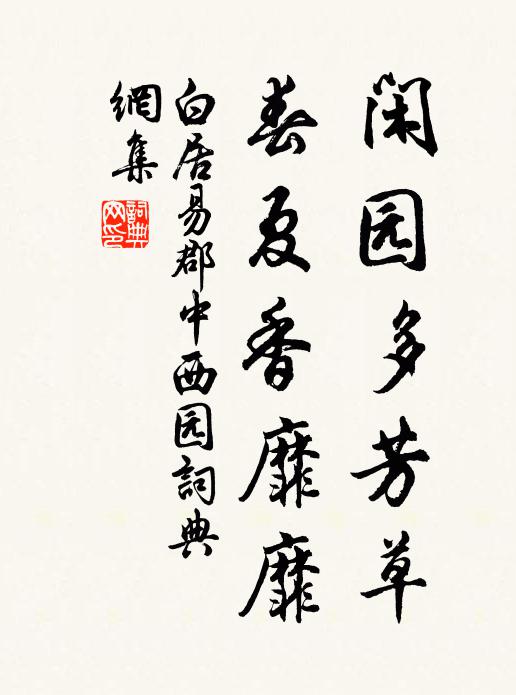 闲园多芳草
春夏香靡靡
白居易郡中西园詞典
網集
詞典
网印